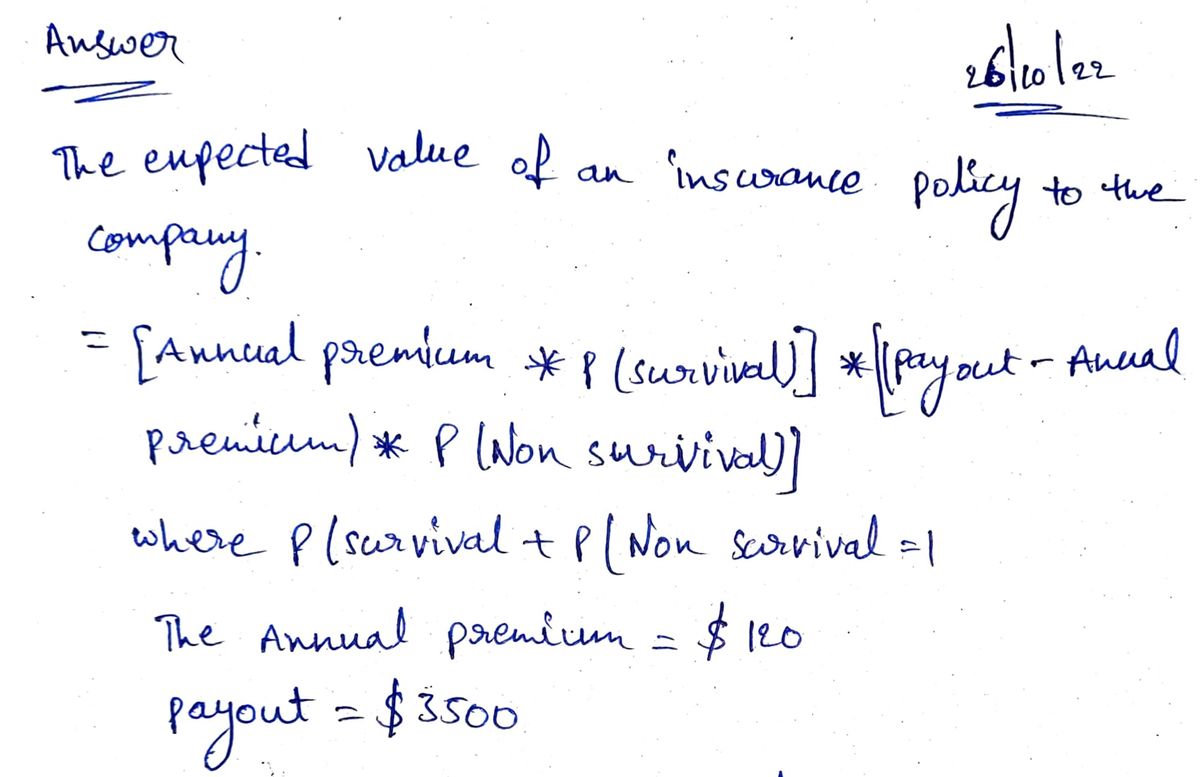 Answer
26/10/22
The expected value of an insurance policy to the
company.
= [Annual premium * P (survival)] * [(payout - Anual
premium) * P (Non survival)]
where P (survival + P ( Non survival = 1
The Annual premium = $ 120
payout = $ 3500